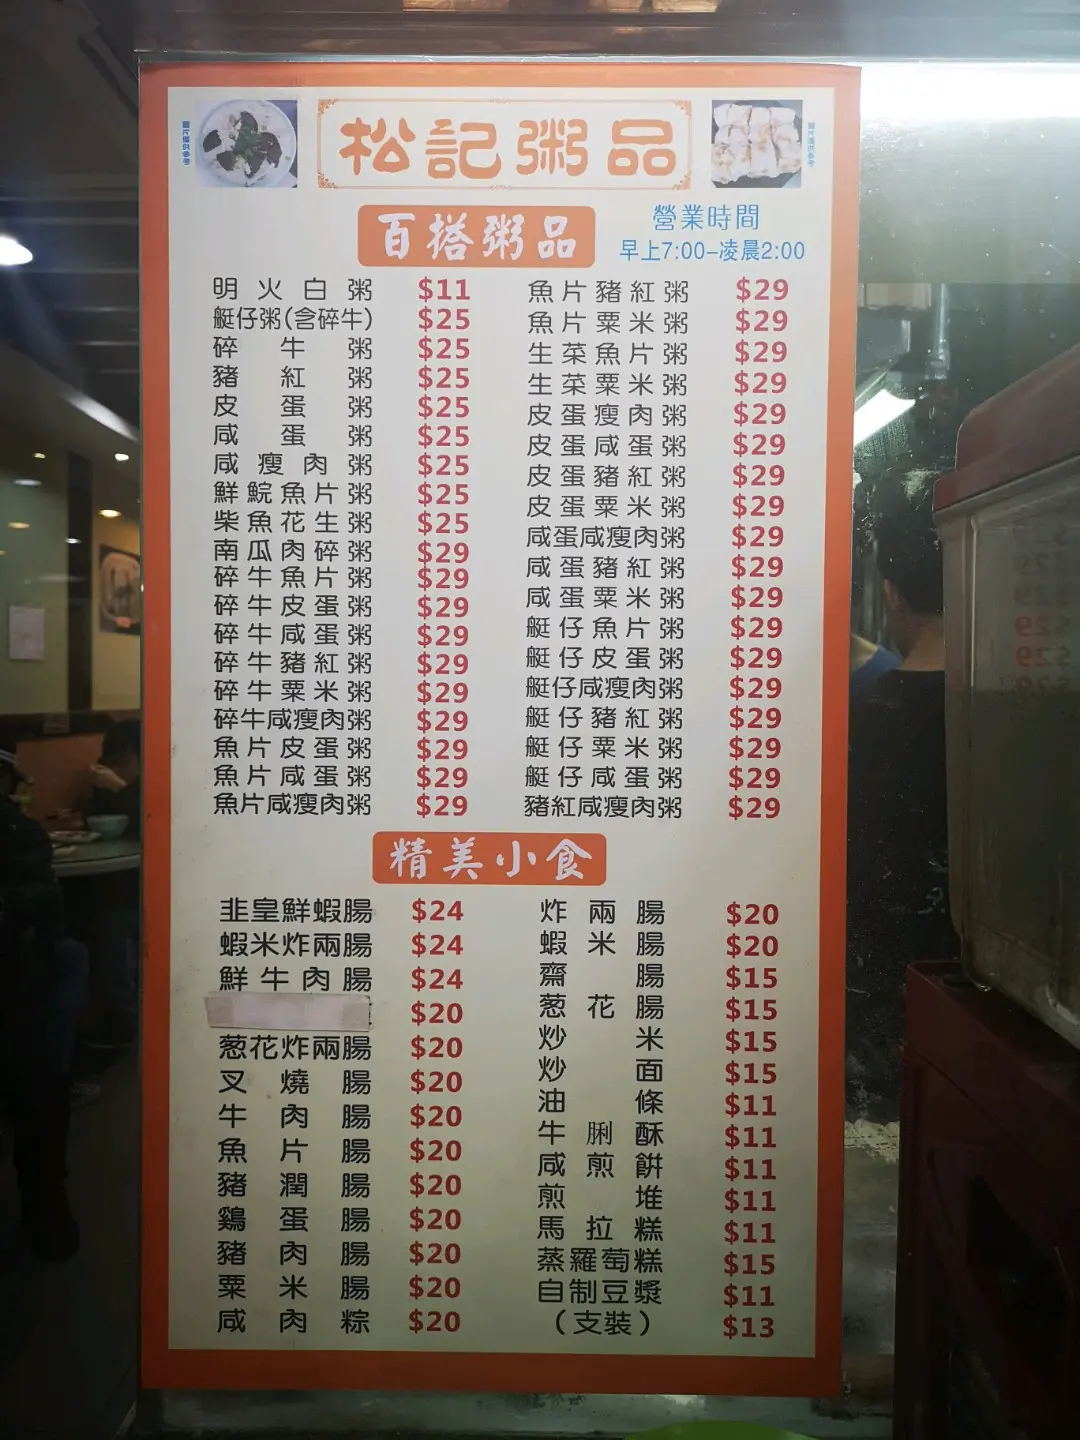 松記粥品
百搭粥品
營業時間
早上7:00-凌晨2:00
明火白粥 $11
艇仔粥(含碎牛) $25
碎牛粥 $25
豬紅粥 $25
皮蛋粥 $25
咸蛋粥 $25
咸瘦肉粥 $25
鮮鯇魚片粥 $25
柴魚花生粥 $25
南瓜肉碎粥 $29
碎牛魚片粥 $29
碎牛皮蛋粥 $29
碎牛咸蛋粥 $29
碎牛豬紅粥 $29
碎牛粟米粥 $29
碎牛咸瘦肉粥 $29
魚片皮蛋粥 $29
魚片咸蛋粥 $29
魚片咸瘦肉粥 $29
魚片豬紅粥 $29
魚片粟米粥 $29
生菜魚片粥 $29
生菜粟米粥 $29
皮蛋瘦肉粥 $29
皮蛋咸蛋粥 $29
皮蛋豬紅粥 $29
皮蛋粟米粥 $29
咸蛋咸瘦肉粥 $29
咸蛋豬紅粥 $29
咸蛋粟米粥 $29
艇仔魚片粥 $29
艇仔皮蛋粥 $29
艇仔咸瘦肉粥 $29
艇仔豬紅粥 $29
艇仔粟米粥 $29
艇仔咸蛋粥 $29
豬紅咸瘦肉粥 $29
精美小食
韭皇鮮蝦腸 $24
蝦米炸兩腸 $24
鮮牛肉腸 $24
$20
葱花炸兩腸 $20
叉燒腸 $20
牛肉腸 $20
魚片腸 $20
豬潤腸 $20
鷄蛋腸 $20
豬肉腸 $20
粟米腸 $20
咸肉粽 $20
炸兩腸 $20
蝦米腸 $20
齋腸 $15
葱花腸 $15
炒米 $15
炒面 $15
油條 $11
牛脷酥 $11
咸煎餅 $11
煎堆 $11
馬拉糕 $11
蒸羅萄糕 $15
自制豆漿 $11
（支裝） $13